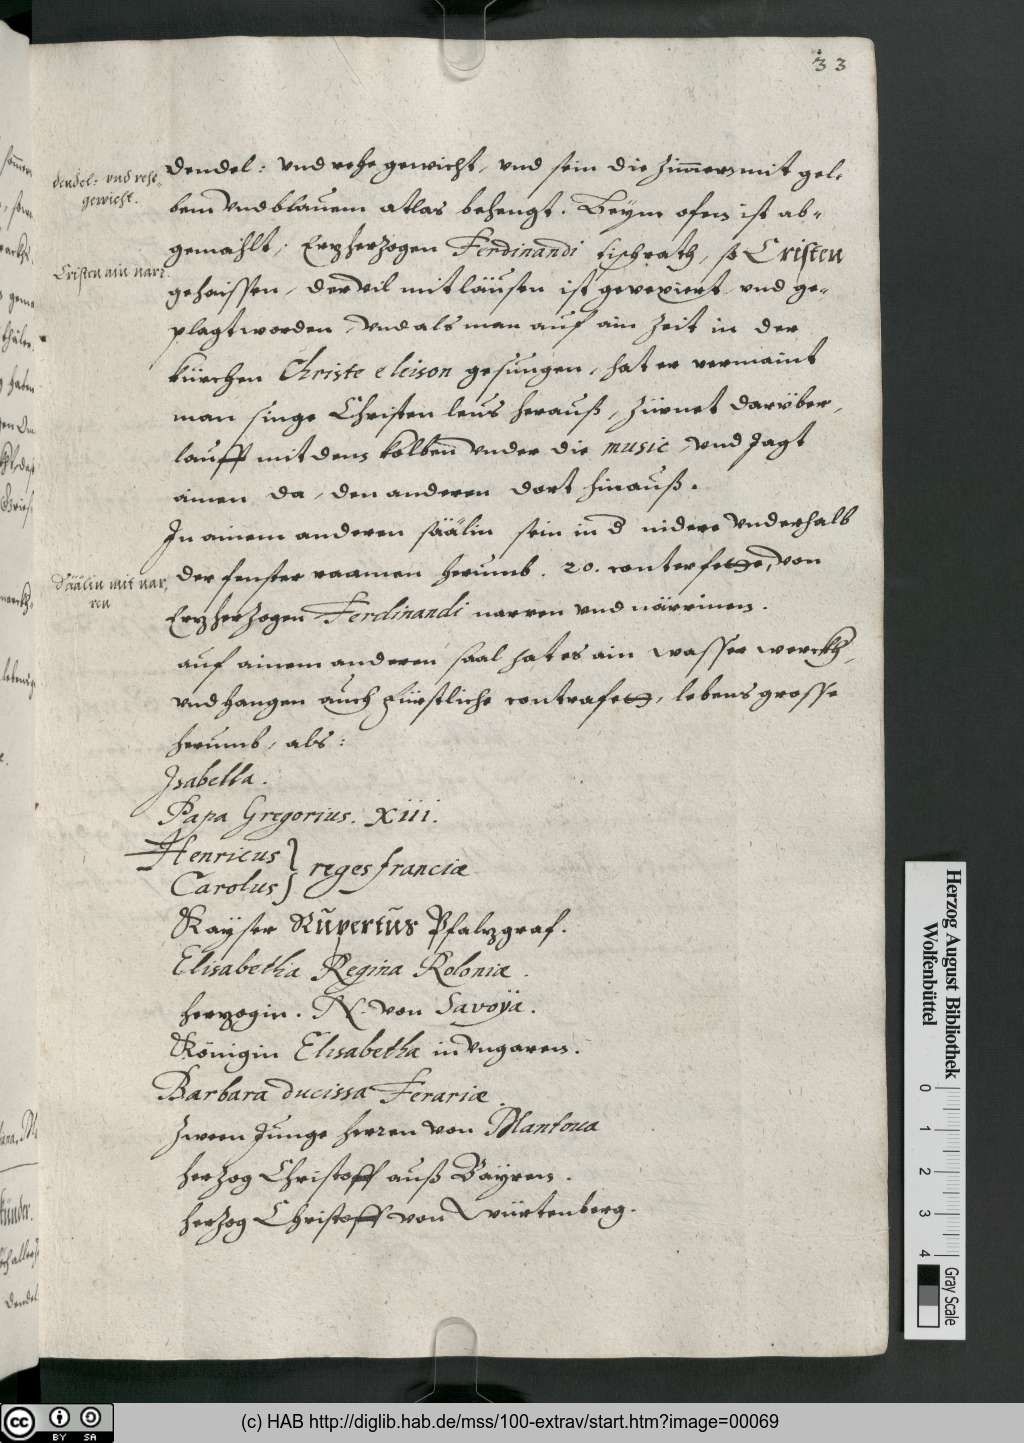 33
dendel: vnd rehe gewicht, vnd sein die Zimmer mit gel-
bem vnd blauem atlas behengt. Beÿm ofen ist ab-
gemahlt, Ertzherzogen Ferdinandi tischrath, so Cristen
gehaissen, der vil mit läusen ist gevexiert vnd ge-
plagt worden, vnd als man auf ain Zeit in der
kürchen Christe eleison gesungen, hat er vermaint
man singe Christen leus herauß, Zürnet darüber,
laufft mit dem kolben vnder die music, vnd Jagt
ainen da, den anderen dort hinauß.
In ainem anderen säälin sein in d nidere vnderhalb
der fenster raamen herumb. 20. conterfette, von
Ertzherzogen Ferdinandi narren vnd närrinen.
auf ainem anderen saal hat es ain wasser werckh,
vnd hangen auch fürstliche contrafett, lebens grosse
herumb, als:
Isabella.
Papa Gregorius. XIII.
Henricus
Carolus } reges franciæ
Kaÿser Rupertus Pfalzgraf.
Elisabetha Regina Poloniæ.
herzogin. N. von Savoÿa.
Königin Elisabetha in vngaren.
Barbara ducissa Ferariæ.
Zween Junge herren von Mantoua
herzog Christoff auß Baÿren.
herzog Christoff von Würtenberg.
dendel: vnd rehe
gewicht.
Cristen ain narr.
Säälin mit nar,
ren
Herzog August Bibliothek
Wolfenbüttel
0 1 2 3 4
Gray Scale
cc BY SA
(c) HAB http://diglib.hab.de/mss/100-extrav/start.htm?image=00069